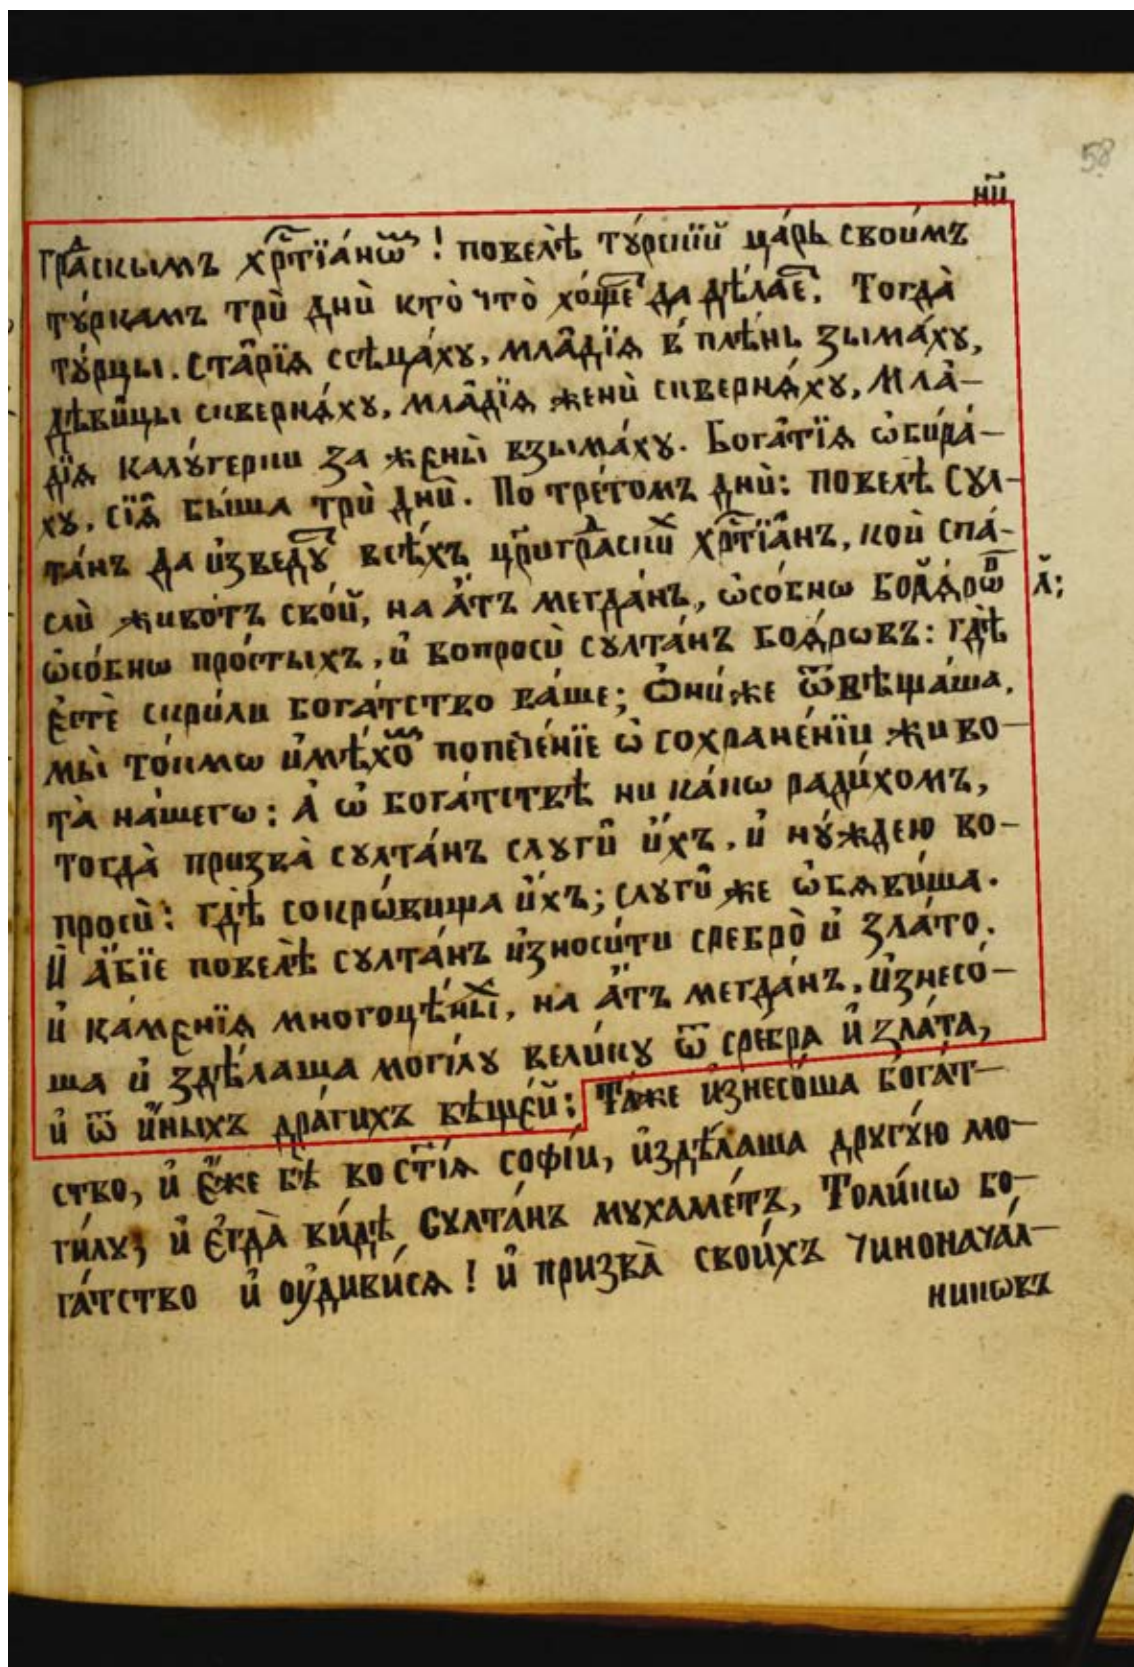 58
н҃и
Гра́дскымъ хр҃тїа́нѡм! повелѣ̀ тꙋ́рскїй ца́рь свои́мъ
тꙋ́ркамъ трѝ днѝ кто̀ что̀ хо́щет да дѣ́лает. Тогда̀
тꙋ́рцы. ста̑рїѧ ссѣца́хꙋ, мла̑дїѧ в̾ плѣ́нь зыма́хꙋ,
дѣви̑цы сквернѧ́хꙋ, мла̑дїѧ женѝ сквернѧ́хꙋ, Мла̑-
дїѧ калꙋ́герки за жены̀ взыма́хꙋ. Бога̑тїѧ ѡбира́-
хꙋ, сїѧ̑ бы́ша трѝ днѝ. По тре́томъ днѝ: повелѣ̀ сꙋл-
та́нъ да и҆зведꙋ́т всѣ́хъ цр҃игра́дских хр҃тїа̑нъ, кои спа́-
слѝ живо́тъ сво́й, на а҆́тъ мегда́нъ, ѡ҆со́бнѡ боѧ́рѡв л҃;
ѡ҆со́бнѡ про́стыхъ, и҆ вопросѝ сꙋлта́нъ боѧ́ровъ: гдѣ̀
є҆стѐ скри́ли бога́тство ва́ше; Ѻ҆ни́ же ѿвѣща́ша,
мы̀ то́кмѡ и҆мѣ́хом попече́нїе ѡ҆ сохране́нїи живо-
та̀ на́шегѡ: а҆ ѡ҆ бога́тствѣ ни ка́кѡ ради́хомъ,
тогда̀ призва̀ сꙋлта́нъ слꙋги̑ и҆́хъ, и҆ нꙋ́ждею во-
просѝ: гдѣ̀ сокрѡ́вища и҆́хъ; слꙋги̑ же ѡ҆бѧви́ша.
И҆ а҆́бїе повелѣ̀ сꙋлта́нъ и҆зноси́ти сребро̀ и҆ зла́то.
и҆ ка́менїѧ многоцѣ́нных, на а҆́тъ мегда́нъ, и҆знесо́-
ша и҆ здѣ́лаша моги́лꙋ вели́кꙋ ѿ сребра и҆ зла́та,
и҆ ѿ и҆́ныхъ дра́гихъ вѣще́й: Та́же и҆знесо́ша бога́т-
ство, и҆ є҆́же бѣ̀ во ст҃і́ѧ софі́и, и҆здѣ́лаша дрꙋгꙋ́ю мо-
ги́лꙋ, и҆ є҆гда̀ ви́дѣ Сꙋлта́нъ мꙋхаме́тъ, Толи́кѡ бо-
га́тство и҆ оу҆диви́сѧ! и҆ призва̀ свои́хъ чинонача́л-
никѡвъ